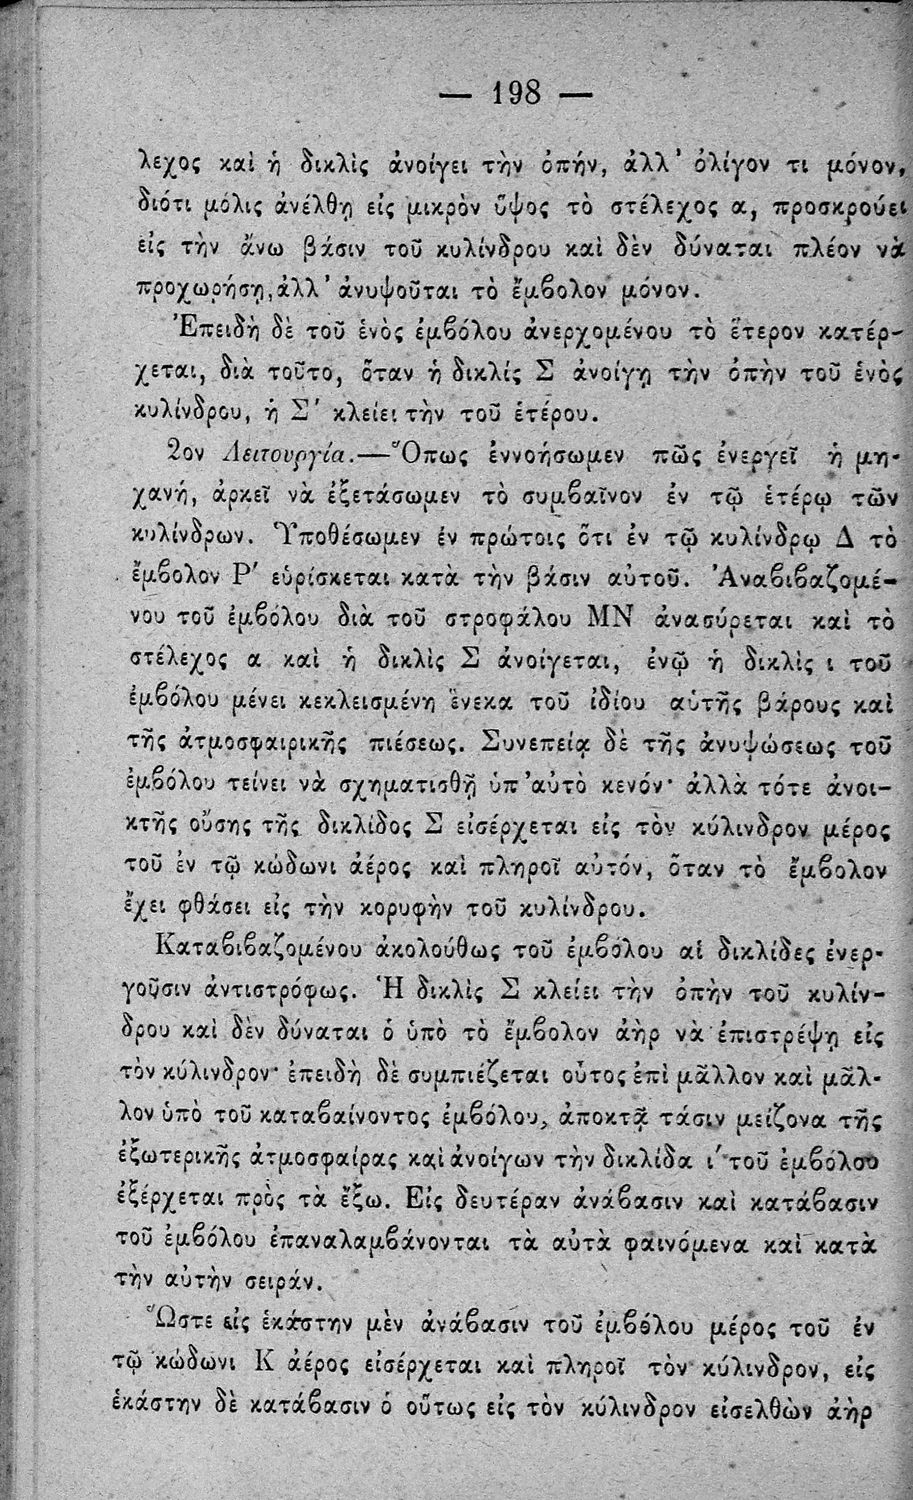 — 198 —
λεχος καὶ ἡ δικλὶς ἀνοίγει τὴν ὀπήν, ἀλλ’ ὀλίγον τι μόνον,
διότι μόλις ἀνέλθῃ εἰς μικρὸν ὕψος τὸ στέλεχος α, προσκρούει
εἰς τὴν ἄνω βάσιν τοῦ κυλίνδρου καὶ δὲν δύναται πλέον νὰ
προχωρήσῃ, ἀλλ’ ἀνυψοῦται τὸ ἔμβολον μόνον.
Ἐπειδὴ δὲ τοῦ ἑνὸς ἐμβόλου ἀνερχομένου τὸ ἕτερον κατέρ-
χεται, διὰ τοῦτο, ὅταν ἡ δικλίς Σ ἀνοίγῃ τὴν ὀπὴν τοῦ ἑνὸς
κυλίνδρου, ἡ Σ′ κλείει τὴν τοῦ ἑτέρου.
2ον Λειτουργία.—Ὅπως ἐννοήσωμεν πῶς ἐνεργεῖ ἡ μη-
χανή, ἀρκεῖ νὰ ἐξετάσωμεν τὸ συμβαῖνον ἐν τῷ ἑτέρῳ τῶν
κυλίνδρων. Ὑποθέσωμεν ἐν πρώτοις ὅτι ἐν τῷ κυλίνδρῳ Δ τὸ
ἔμβολον Ρ′ εὑρίσκεται κατὰ τὴν βάσιν αὐτοῦ. Ἀναβιβαζομέ-
νου τοῦ ἐμβόλου διὰ τοῦ στροφάλου ΜΝ ἀνασύρεται καὶ τὸ
στέλεχος α καὶ ἡ δικλὶς Σ ἀνοίγεται, ἐνῷ ἡ δικλὶς ι τοῦ
ἐμβόλου μένει κεκλεισμένη ἕνεκα τοῦ ἰδίου αὑτῆς βάρους καὶ
τῆς ἀτμοσφαιρικῆς πιέσεως. Συνεπείᾳ δὲ τῆς ἀνυψώσεως τοῦ
ἐμβόλου τείνει νὰ σχηματισθῇ ὑπ’ αὐτὸ κενόν· ἀλλὰ τότε ἀνοι-
κτῆς οὔσης τῆς δικλίδος Σ εἰσέρχεται εἰς τὸν κύλινδρον μέρος
τοῦ ἐν τῷ κώδωνι ἀέρος καὶ πληροῖ αὐτόν, ὅταν τὸ ἔμβολον
ἔχει φθάσει εἰς τὴν κορυφὴν τοῦ κυλίνδρου.
Καταβιβαζομένου ἀκολούθως τοῦ ἐμβόλου αἱ δικλίδες ἐνερ-
γοῦσιν ἀντιστρόφως. Ἡ δικλὶς Σ κλείει τὴν ὀπὴν τοῦ κυλίν-
δρου καὶ δὲν δύναται ὁ ὑπὸ τὸ ἔμβολον ἀὴρ νὰ ἐπιστρέψῃ εἰς
τὸν κύλινδρον· ἐπειδὴ δὲ συμπιέζεται οὗτος ἐπὶ μᾶλλον καὶ μᾶλ-
λον ὑπὸ τοῦ καταβαίνοντος ἐμβόλου, ἀποκτᾷ τάσιν μείζονα τῆς
ἐξωτερικῆς ἀτμοσφαίρας καὶ ἀνοίγων τὴν δικλίδα ι′ τοῦ ἐμβόλου
ἐξέρχεται πρὸς τὰ ἔξω. Εἰς δευτέραν ἀνάβασιν καὶ κατάβασιν
τοῦ ἐμβόλου ἐπαναλαμβάνονται τὰ αὐτὰ φαινόμενα καὶ κατὰ
τὴν αὐτὴν σειράν.
Ὥστε εἰς ἑκάστην μὲν ἀνάβασιν τοῦ ἐμβόλου μέρος τοῦ ἐν
τῷ κώδωνι Κ ἀέρος εἰσέρχεται καὶ πληροῖ τὸν κύλινδρον, εἰς
ἑκάστην δὲ κατάβασιν ὁ οὕτως εἰς τὸν κύλινδρον εἰσελθὼν ἀὴρ